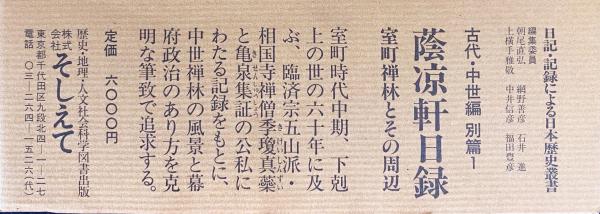 日記・記録による日本歴史叢書
編集委員
朝尾直弘 網野善彦 石井 進
上横手雅敬 中井信彦 福田豊彦
古代・中世編 別篇1
蔭凉軒日録
室町禅林とその周辺
室町時代中期、下剋
上の世の六十年に及
ぶ、臨済宗五山派・
相国寺禅僧季瓊真蘂
と亀泉集証の公私に
わたる記録をもとに、
中世禅林の風景と幕
府政治のあり方を克
明な筆致で追求する。
定価 六〇〇〇円
歴史・地理・人文社会科学図書出版
株式会社 そしえて
東京都千代田区九段北四-一-二七
電話 〇三-二六四-一五二六(代)